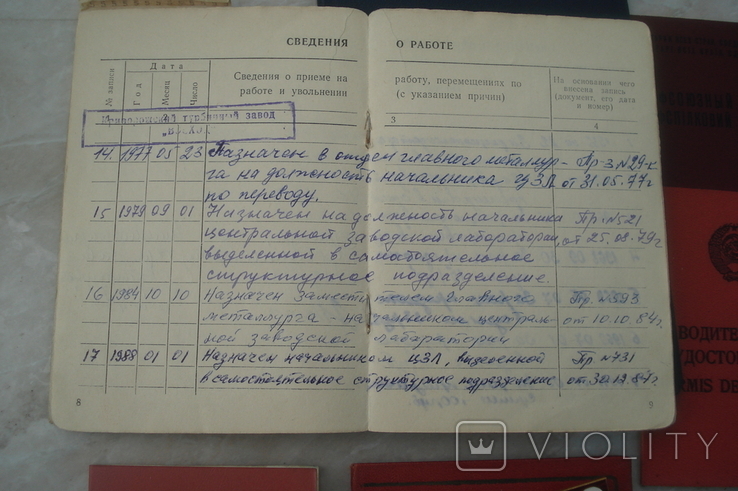 СВЕДЕНИЯ О РАБОТЕ
№ записи
Дата
Год
Месяц
Число
Сведения о приеме на работу, перемещениях по
работе и увольнении (с указанием причин)
На основании чего
внесена запись
(документ, его дата
и номер)
1 2 3 4
Криворожский турбинный завод
"Восход"
14. 1977 05 23 Назначен в отдел главного металлур- Пр-з N29-к
га на должность начальника ЦЗЛ от 31.05.77г
по переводу.
15 1979 09 01 Назначен на должность начальника Пр. N521
центральной заводской лаборатории от 25.08.79г.
выделенной в самостоятельное
структурное подразделение.
16 1984 10 10 Назначен заместителем главного Пр. N593
металлурга - начальником централь- от 10.10.84г.
ной заводской лаборатории
17 1988 01 01 Назначен начальником ЦЗЛ, выделенной Пр N731
в самостоятельное структурное подразделение от 30.12.87г.
8
9
ВОДИТЕ
УДОСТО
RMIS DE
VIOLITY